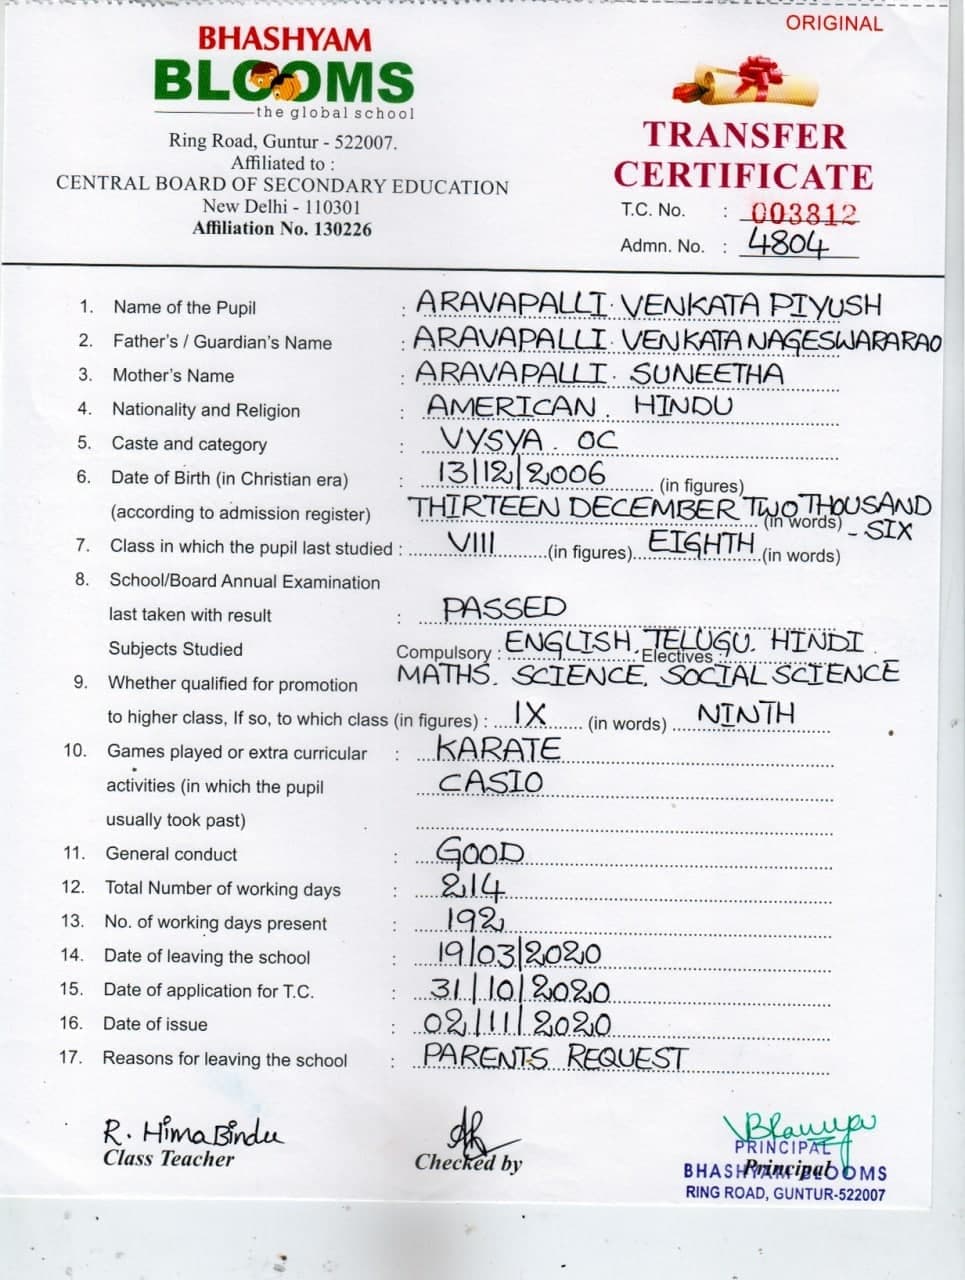 ORIGINAL
BHASHYAM
BLOOMS
the global school
Ring Road, Guntur - 522007.
Affiliated to :
CENTRAL BOARD OF SECONDARY EDUCATION
New Delhi - 110301
Affiliation No. 130226
TRANSFER
CERTIFICATE
T.C. No. : 003812
Admn. No. : 4804
1. Name of the Pupil : ARAVAPALLI. VENKATA PIYUSH
2. Father's / Guardian's Name : ARAVAPALLI. VENKATA NAGESWARARAO
3. Mother's Name : ARAVAPALLI. SUNEETHA
4. Nationality and Religion : AMERICAN. HINDU
5. Caste and category : VYSYA. OC
6. Date of Birth (in Christian era) : 13/12/2006 (in figures)
(according to admission register) THIRTEEN DECEMBER TWO THOUSAND (in words) - SIX
7. Class in which the pupil last studied : VIII (in figures) EIGHTH (in words)
8. School/Board Annual Examination
last taken with result : PASSED
Subjects Studied Compulsory : ENGLISH, TELUGU. HINDI Electives :
MATHS. SCIENCE. SOCIAL SCIENCE
9. Whether qualified for promotion
to higher class, If so, to which class (in figures) : IX (in words) NINTH
10. Games played or extra curricular : KARATE
activities (in which the pupil CASIO
usually took past)
11. General conduct : GOOD
12. Total Number of working days : 214
13. No. of working days present : 192
14. Date of leaving the school : 19/03/2020
15. Date of application for T.C. : 31/10/2020
16. Date of issue : 02/11/2020
17. Reasons for leaving the school : PARENTS REQUEST
R. Hima Bindu
Class Teacher
Checked by
PRINCIPAL
Principal
BHASHYAM BLOOMS
RING ROAD, GUNTUR-522007